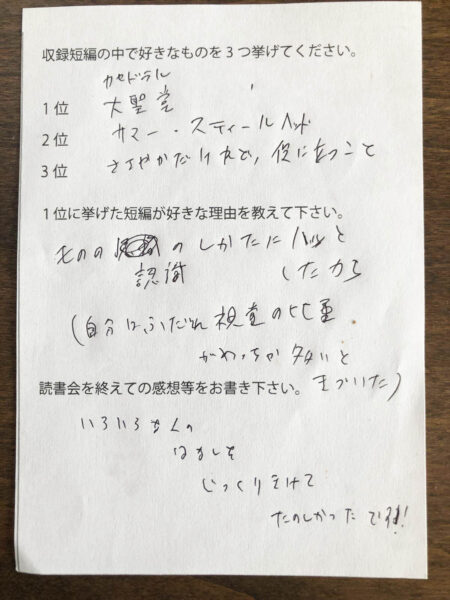 収録短編の中で好きなものを3つ挙げてください。
カセドラル
1位 大聖堂
2位 サマー・スティールヘッド
3位 ささやかだけれど、役に立つこと
1位に挙げた短編が好きな理由を教えて下さい。
ものの のしかたにハッと
認識 したから
(自分はふだん視覚の比重
がめっちゃ多いと
読書会を終えての感想等をお書き下さい。 気づいた)
いろいろな人の
はなしを
じっくりきけて
たのしかったです!!